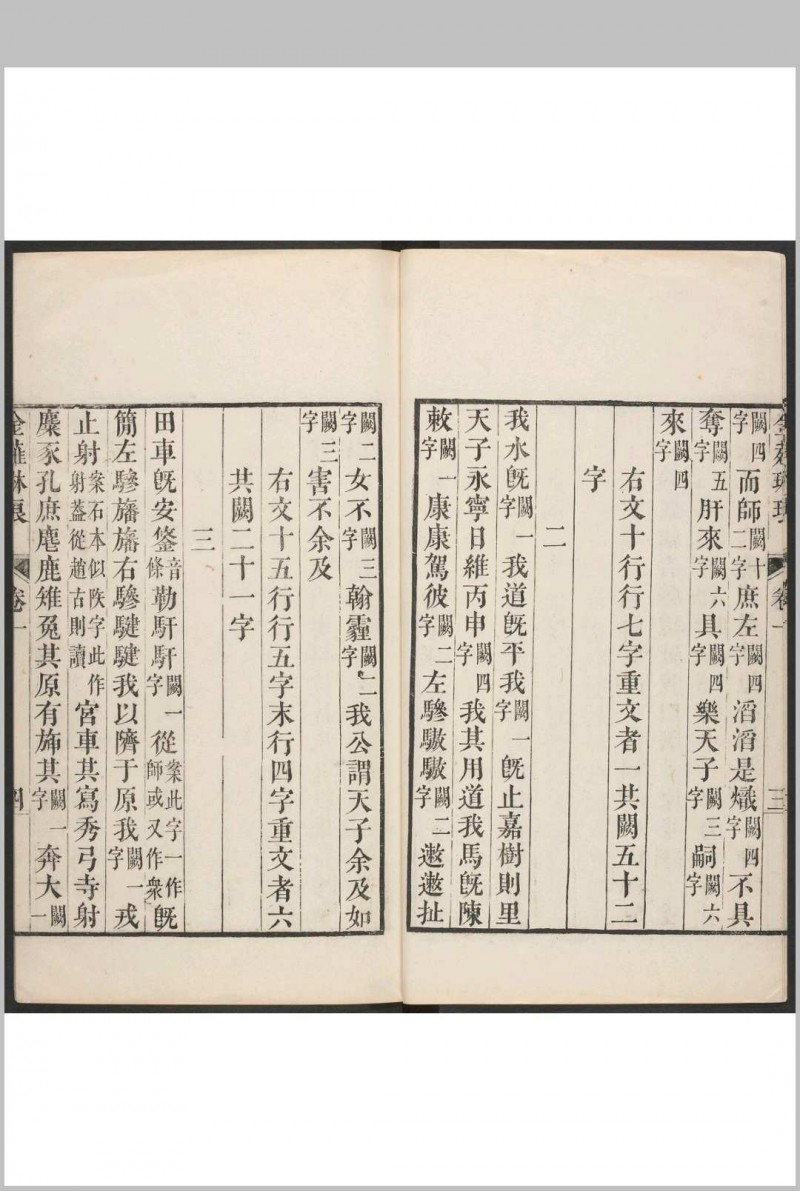 闕四字而師闕十二字庶左闕四字滔滔是熾闕四字不具
奪闕五字肝來闕六字具闕四字樂天子闕三字嗣闕六字
來闕四字
右文十行行七字重文者一共闕五十二
字
二
我水旣闕一字我道旣平我闕一字旣止嘉樹則里
天子永寧日維丙申闕四字我其用道我馬旣陳
敕闕一字康康駕彼闕二字左驂驐驐闕二字遬遬扯
闕二字女不闕三字翰霾闕二字我公謂天子余及如
闕三字害不余及
右文十五行行五字末行四字重文者六
共闕二十一字
三
田車旣安鋚音條勒馯馯闕一字從案此字一作師或又作衆旣
簡左驂旛旛右驂騝騝我以隮于原我闕一字戎
止射案石本似陕字此作射蓋從趙古則讀宮車其寫秀弓寺射
麋豕孔庶麀鹿雉兔其原有斾其闕一字奔大闕一
卷一
三
卷一
四